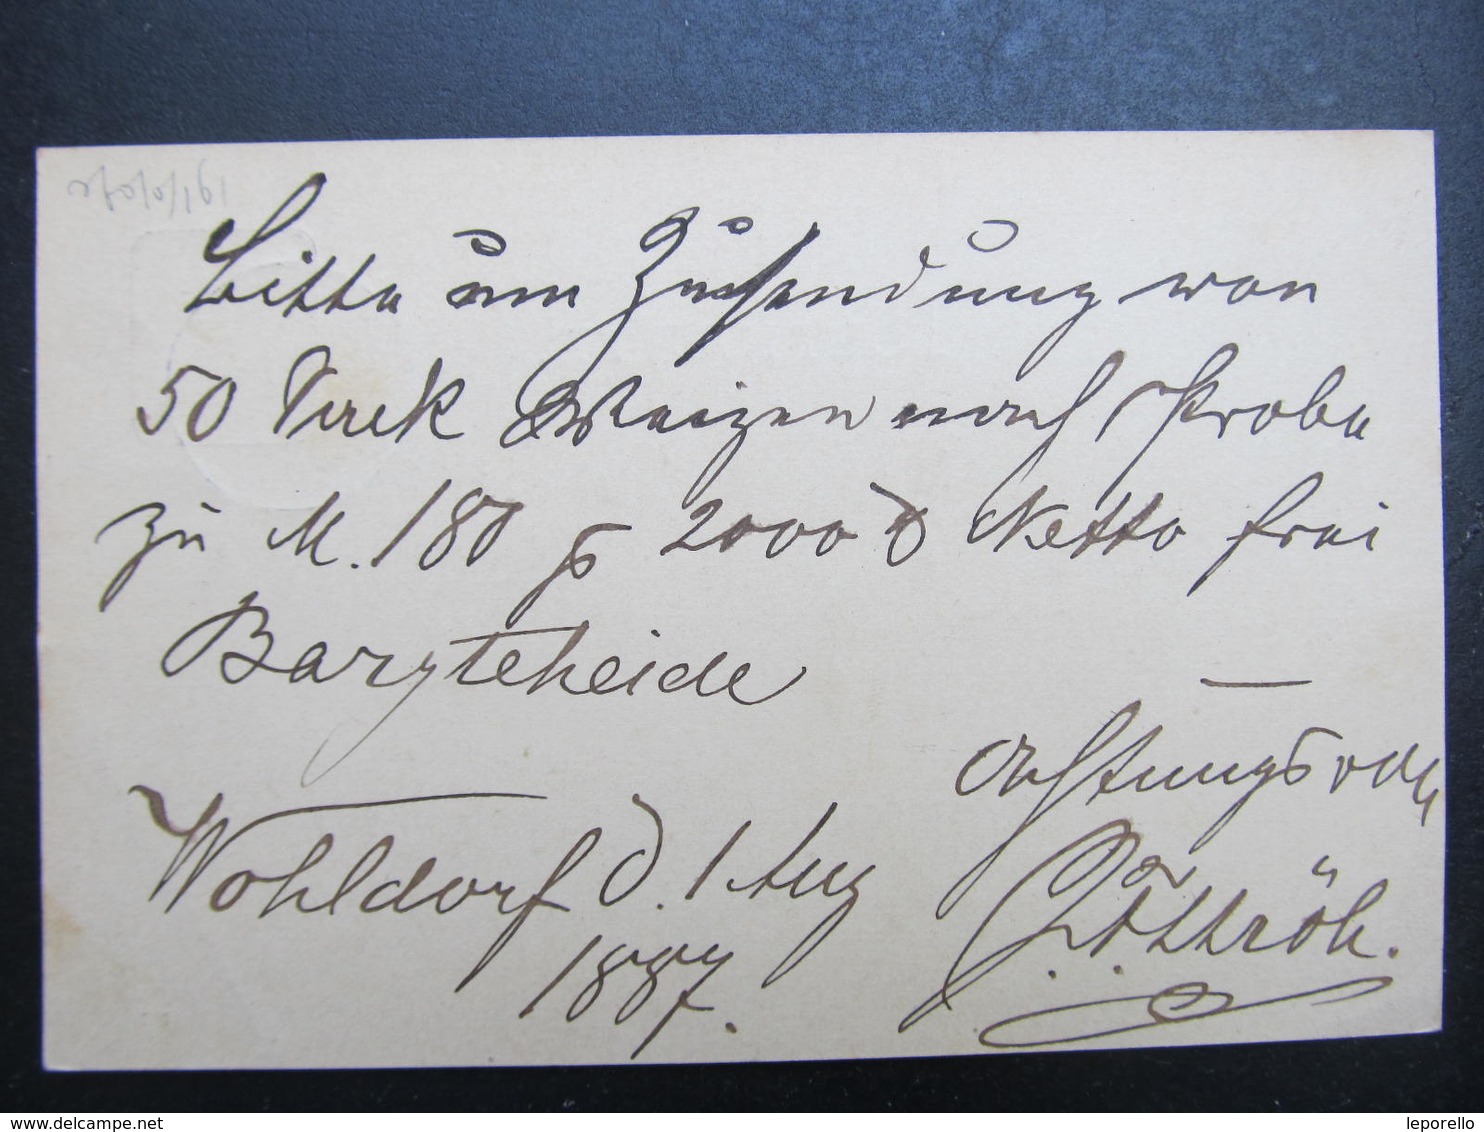 Bitte um Zusendung von
50 Sack Weizen nach Probe
zu M. 180 p 2000 ℔ Netto frei
Bargteheide
Achtungsvoll
Wohldorf d. 1 Aug
1887.
delcampe.net
leporello